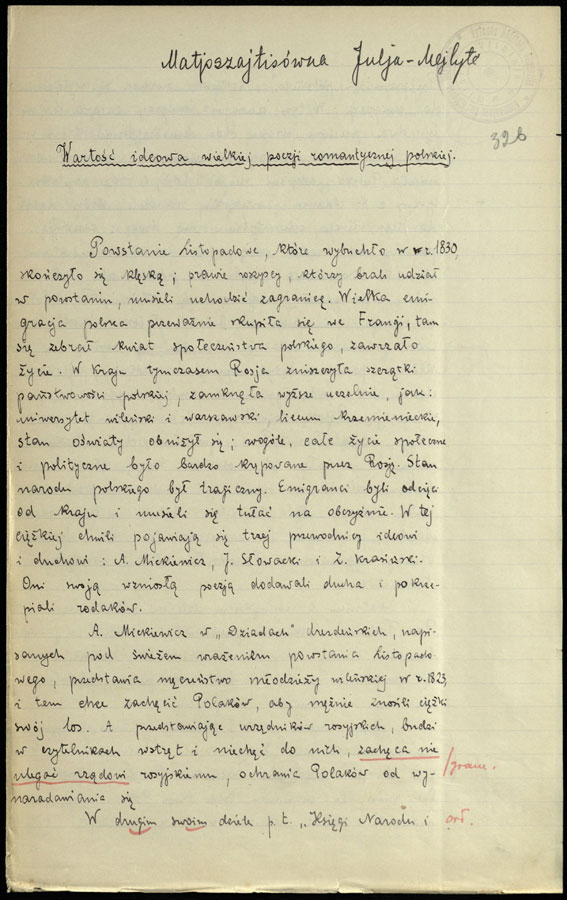 Matjoszajtisówna Julja-Mejlyte
326
Wartość ideowa wielkiej poezji romantycznej polskiej.
Powstanie Listopadowe, które wybuchło w r. 1830,
skończyło się klęską; prawie wszyscy, którzy brali udział
w powstaniu, musieli uchodzić zagranicę. Wielka emi-
gracja polska przeważnie skupiła się we Francji, tam
się zebrał kwiat społeczeństwa polskiego, zawrzało
życie. W kraju tymczasem Rosja zniszczyła szczątki
państwowości polskiej, zamknęła wyższe uczelnie, jak:
uniwersytet wileński i warszawski, liceum krzemienieckie,
stan oświaty obniżył się; wogóle, całe życie społeczne
i polityczne było bardzo krępowane przez Rosję. Stan
narodu polskiego był tragiczny. Emigranci byli odcięci
od kraju i musieli się tułać na obczyźnie. W tej
ciężkiej chwili pojawiają się trzej przewodnicy ideowi
i duchowi: A. Mickiewicz, J. Słowacki i Z. Krasiński.
Oni swoją wzniosłą poezją dodawali ducha i pokrze-
piali rodaków.
A. Mickiewicz w „Dziadach" drezdeńskich, napi-
sanych pod świeżem wrażeniem powstania Listopado-
wego, przedstawia męczeństwo młodzieży wileńskiej w r. 1823,
i tem chce zachęcić Polaków, aby mężnie znosili ciężki
swój los. A przedstawiając urzędników rosyjskich, budzi
w czytelnikach wstręt i niechęć do nich, zachęca nie
ulegać rządowi rosyjskiemu, ochrania Polaków od wy-
naradawiania się
W drugim swoim dziele p. t. „Księgi Narodu i ort.